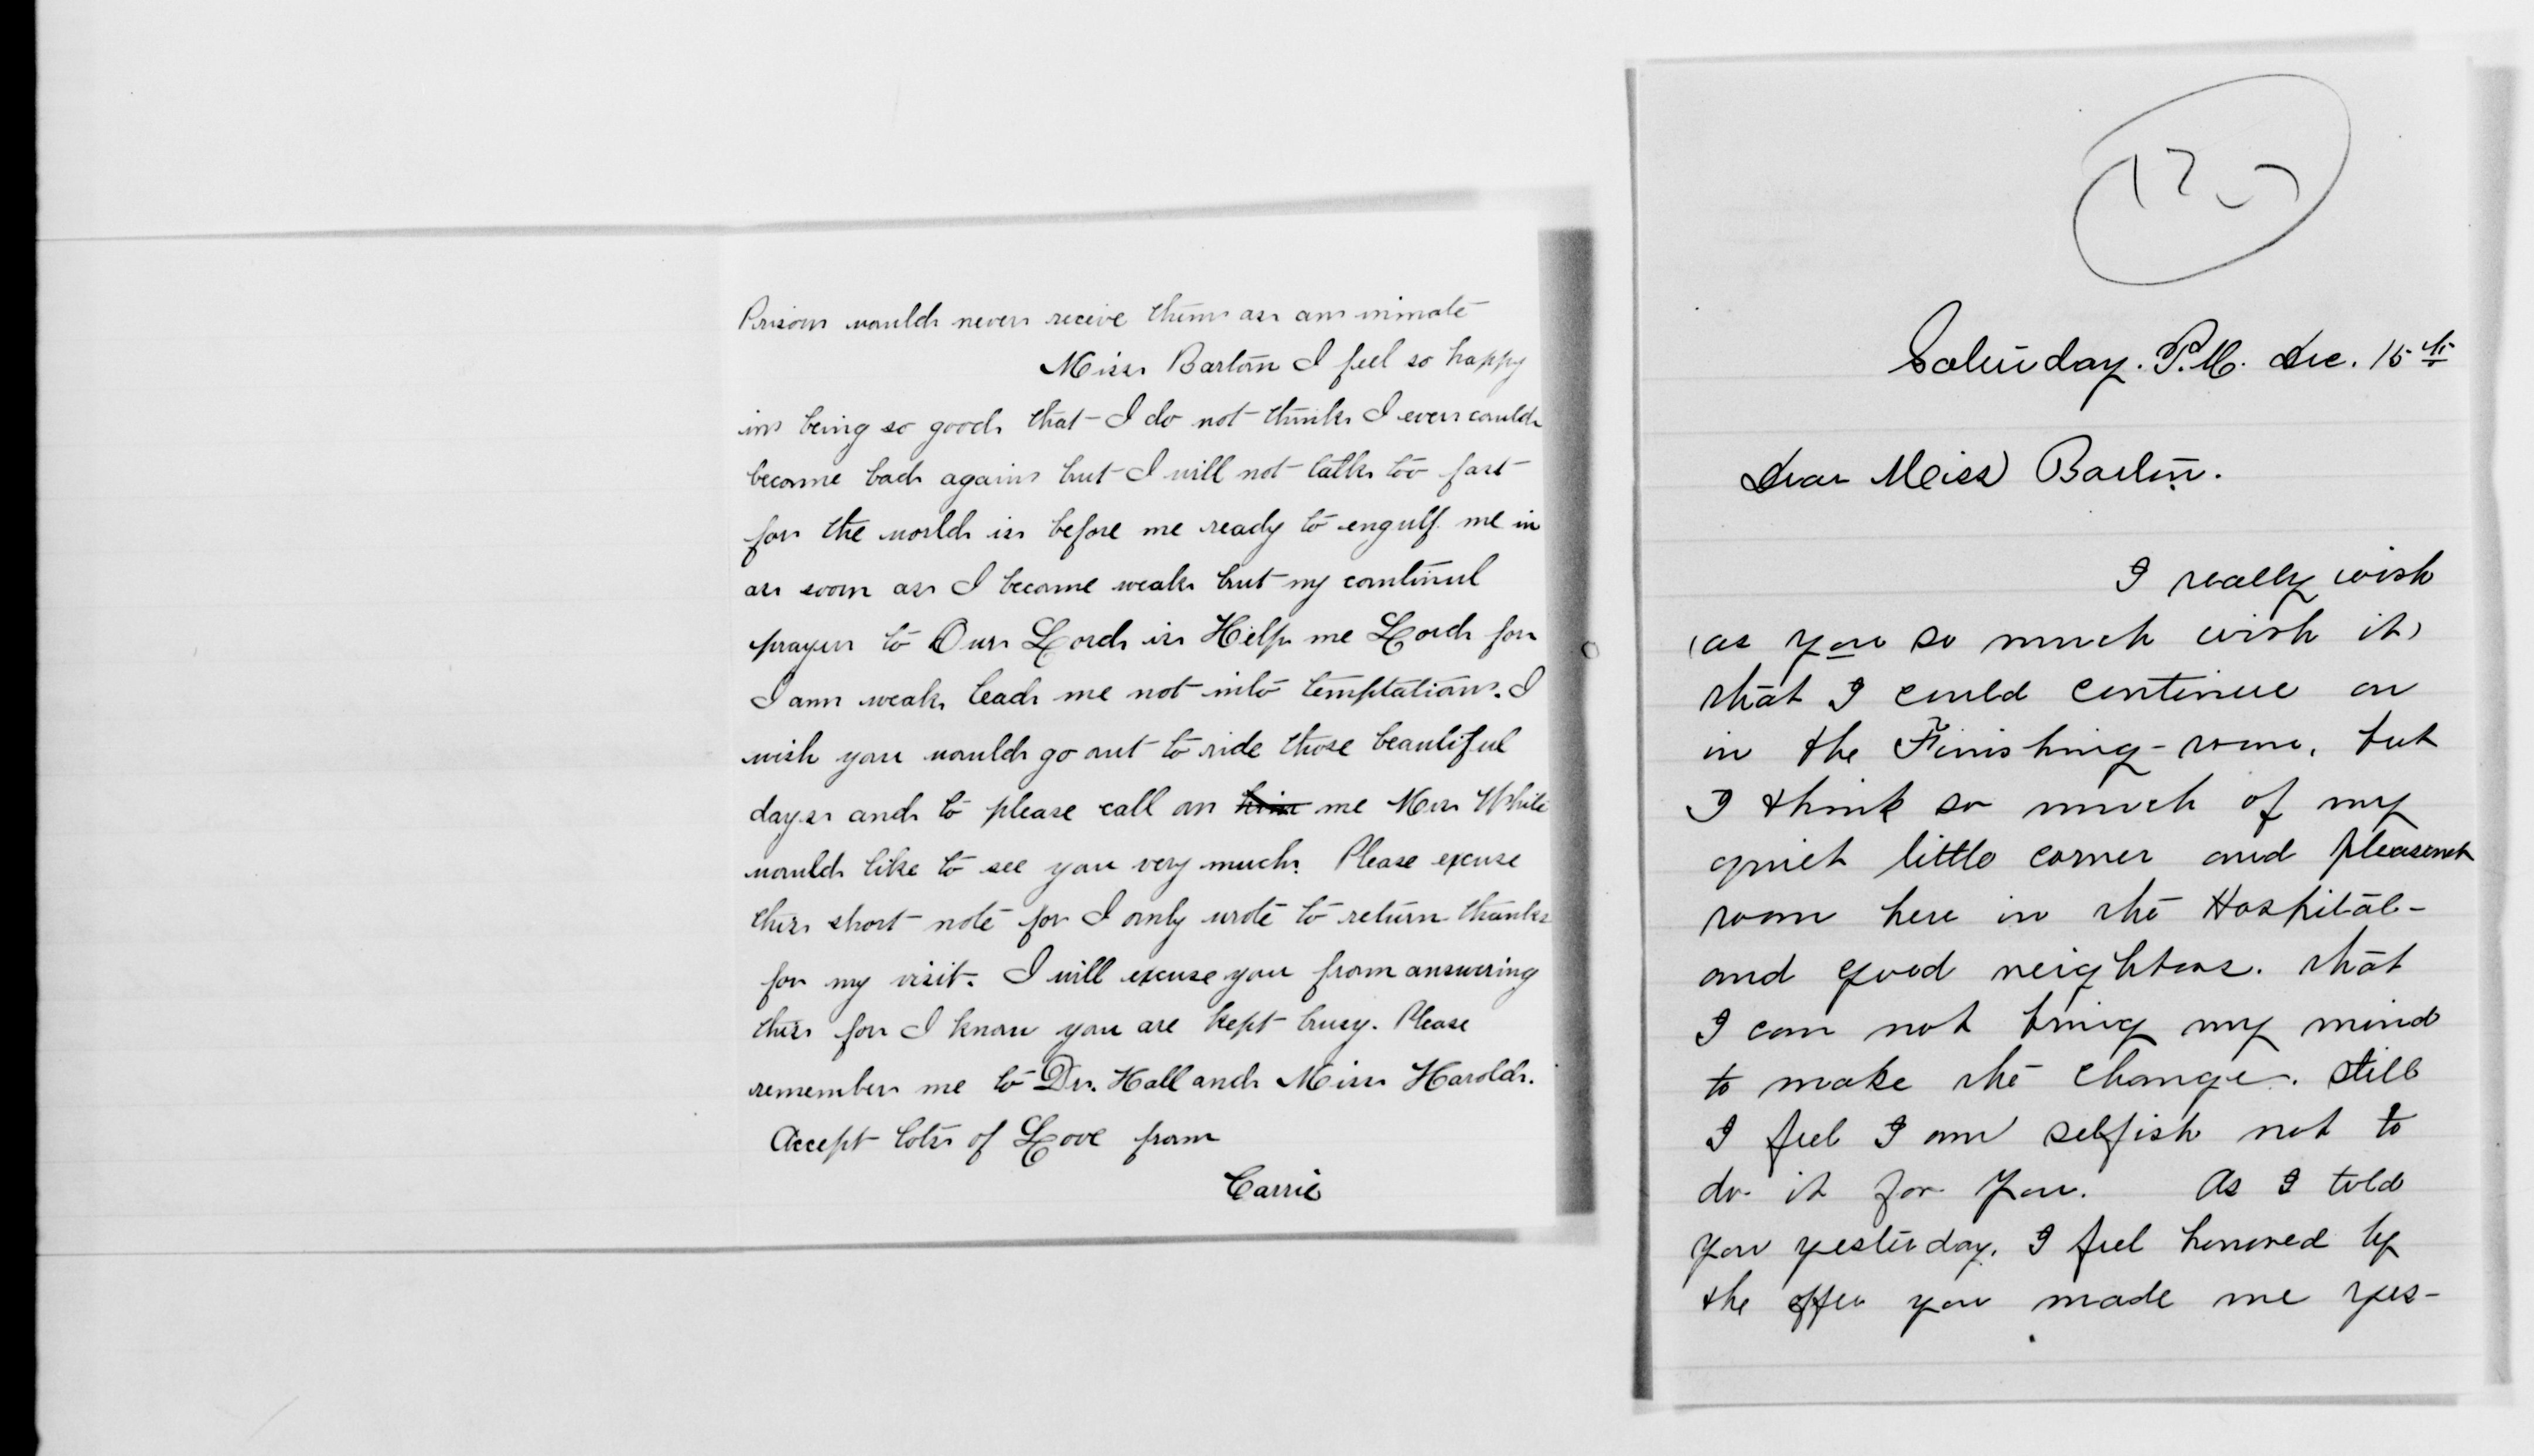 Prison would never recive them as an inmate
Miss Barton I feel so happy
in being so good that I do not think I ever could
become bad again but I will not talk too fast
for the world is before me ready to engulf me in
as soon as I become weak but my continul
prayer to Our Lord is Help me Lord for
I am weak lead me not into temptation. I
wish you would go out to ride those beautiful
days and to please call on him me Mrs White
would like to see you very much. Please excuse
this short note for I only wrote to return thanks
for my visit. I will excuse you from answering
this for I know you are kept busy. Please
remember me to Dr. Hall and Miss Harold.
Accept lots of Love from
Carrie
Saturday. P.M. Dec. 15th
Dear Miss Barton.
I really wish
(as you so much wish it)
that I could continue on
in the Finishing-room, but
I think so much of my
quiet little corner and pleasent
room here in the Hospital-
and good neighbors. that
I can not bring my mind
to make the change. Still
I feel I am selfish not to
do it for you. As I told
you yesterday. I feel honored by
the offer you made me yes-